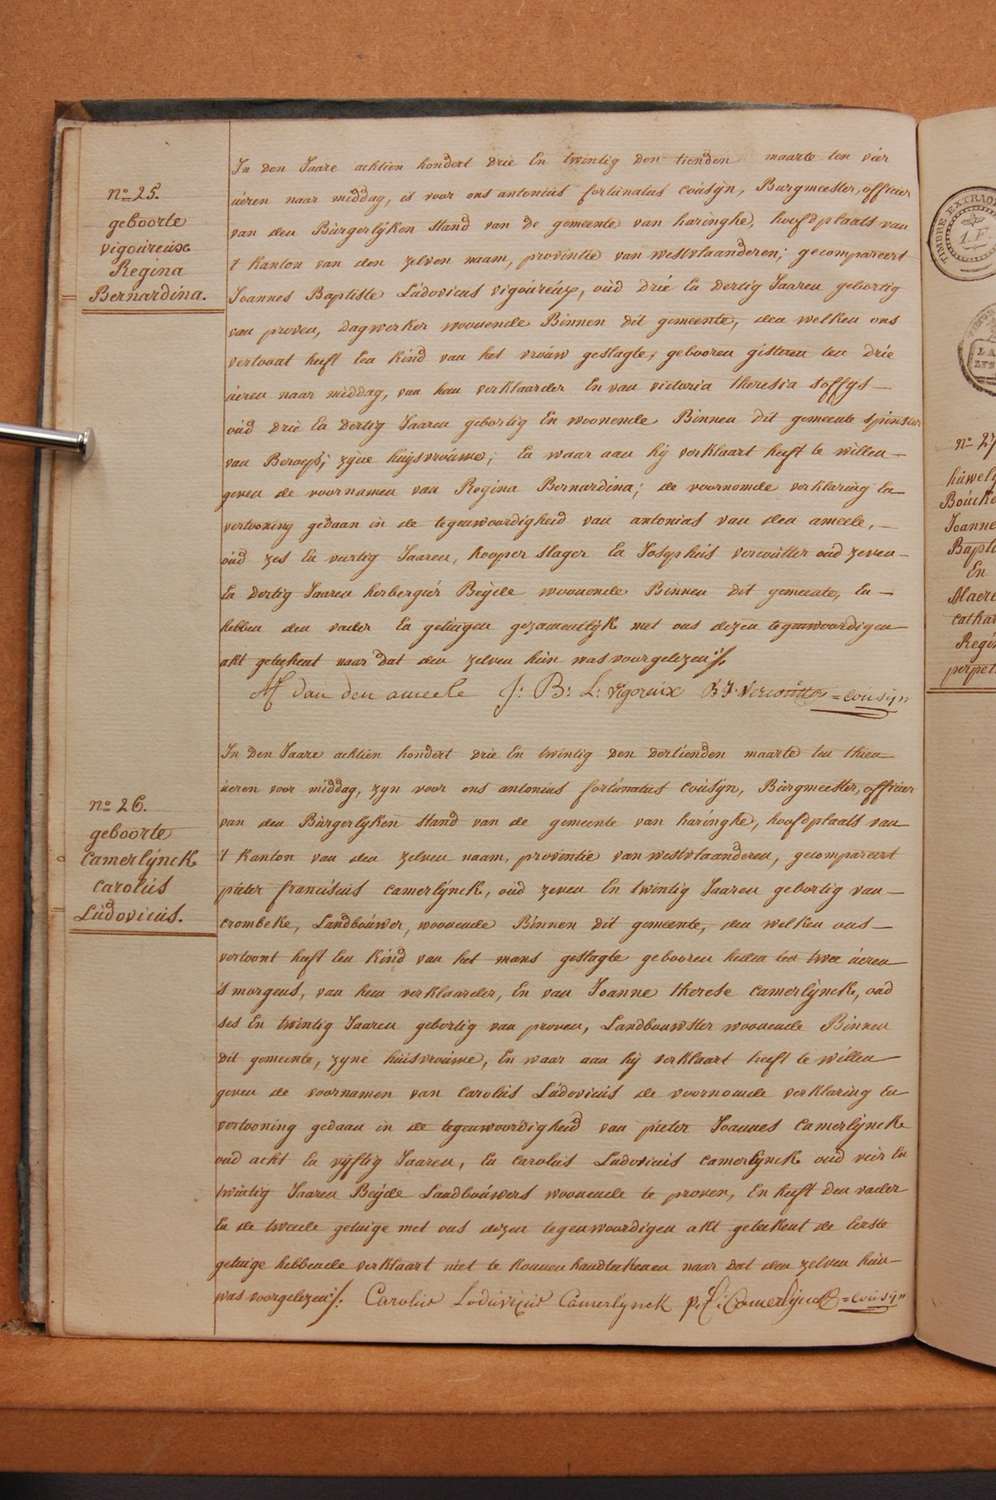 No 25.
geboorte
vigoureux
Regina
Bernardina.
In den Jaare achtien hondert drie En twintig den tienden maarte ten vier
üeren naar middag, is voor ons antonius fortünatus coüsÿn, Burgmeester, officier
van den Bürgerlÿken Stand van de gemeente van haringhe, hoofdplaats van
't kanton van den zelven naam, provintie van westvlaanderen; gecompareert
Joannes Baptiste Ludovicus vigoureux, oüd drie En dertig Jaaren gebortig
van proven, dagwerker woonende Binnen dit gemeente, den welken ons
vertoont heeft Een kind van het vroüw geslagte, gebooren gisteren ten drie
üeren naar middag, van hem verklaarder En van victoria theresia soffÿs
oüd drie En dertig Jaaren gebortig En woonende Binnen dit gemeente spinster
van Beroep; zÿne huÿsvroüwe; En waar aan hÿ verklaart heeft te willen
geven de voornamen van Regina Bernardina; de voornomde verklaring En
vertooning gedaan in de tegenwoordigheid van antonius van den ameele,
oüd zes En veertig Jaaren, kooper slager En Josephüs vercoütter oud zeven
En dertig Jaaren herbergier Beÿde woonende Binnen dit gemeente, En
hebben den vader En getuigen gezamentlÿk met ons dezen tegenwoordigen
akt geteekent naar dat den zelven hün was voorgelezen ./.
A van den ameele J: B: L: Vigoreux B J. Vercoutter = coüsÿn
No 26.
geboorte
Camerlÿnck
Carolüs
Lüdovicus.
In den Jaare achtien hondert drie En twintig den dertienden maarte ten thien
üeren voor middag, zÿn voor ons antonius fortünatus coüsÿn, Bürgmeester, officier
van den Bürgerlÿken Stand van de gemeente van haringhe, hoofdplaats van
't kanton van den zelven naam, proventie van westvlaanderen, gecompareert
pieter franciscus camerlÿnck, oüd zeven En twintig Jaaren gebortig van
crombeke, Landboüwer, woonende Binnen dit gemeente, den welken ons
vertoont heeft Een kind van het mans geslagte gebooren heden ten twee üeren
's morgens, van hem verklaarder, En van Joanne therese camerlÿnck, oüd
ses En twintig Jaaren gebortig van proven, Landbouwster woonende Binnen
dit gemeente, zÿne huisvroüwe, En waar aan hÿ verklaart heeft te willen
geven de voornamen van Carolüs Lüdovicüs de voornomde verklaring En
vertooning gedaan in de tegenwoordigheid van pieter Joannes Camerlÿnck
oud acht En vÿftig Jaaren, En Carolüs Lüdovicüs Camerlÿnck oud vier En
twintig Jaaren Beÿde Landboüwers woonende te proven, En heeft den vader
En de tweede getuige met ons dezen tegenwoordigen akt geteekent de Eerste
getuige hebbende verklaart niet te konnen handteekenen naar dat den zelven hün
was voorgelezen ./. Carolus Lodüvicus Camerlynck p. f. Camerlÿnck = coüsÿn
TIMBRE EXTRAO
1. F.
No 27
hüwely
Boücke
Joanne
Bapti
En
Maere
cathar
Regi
perpet